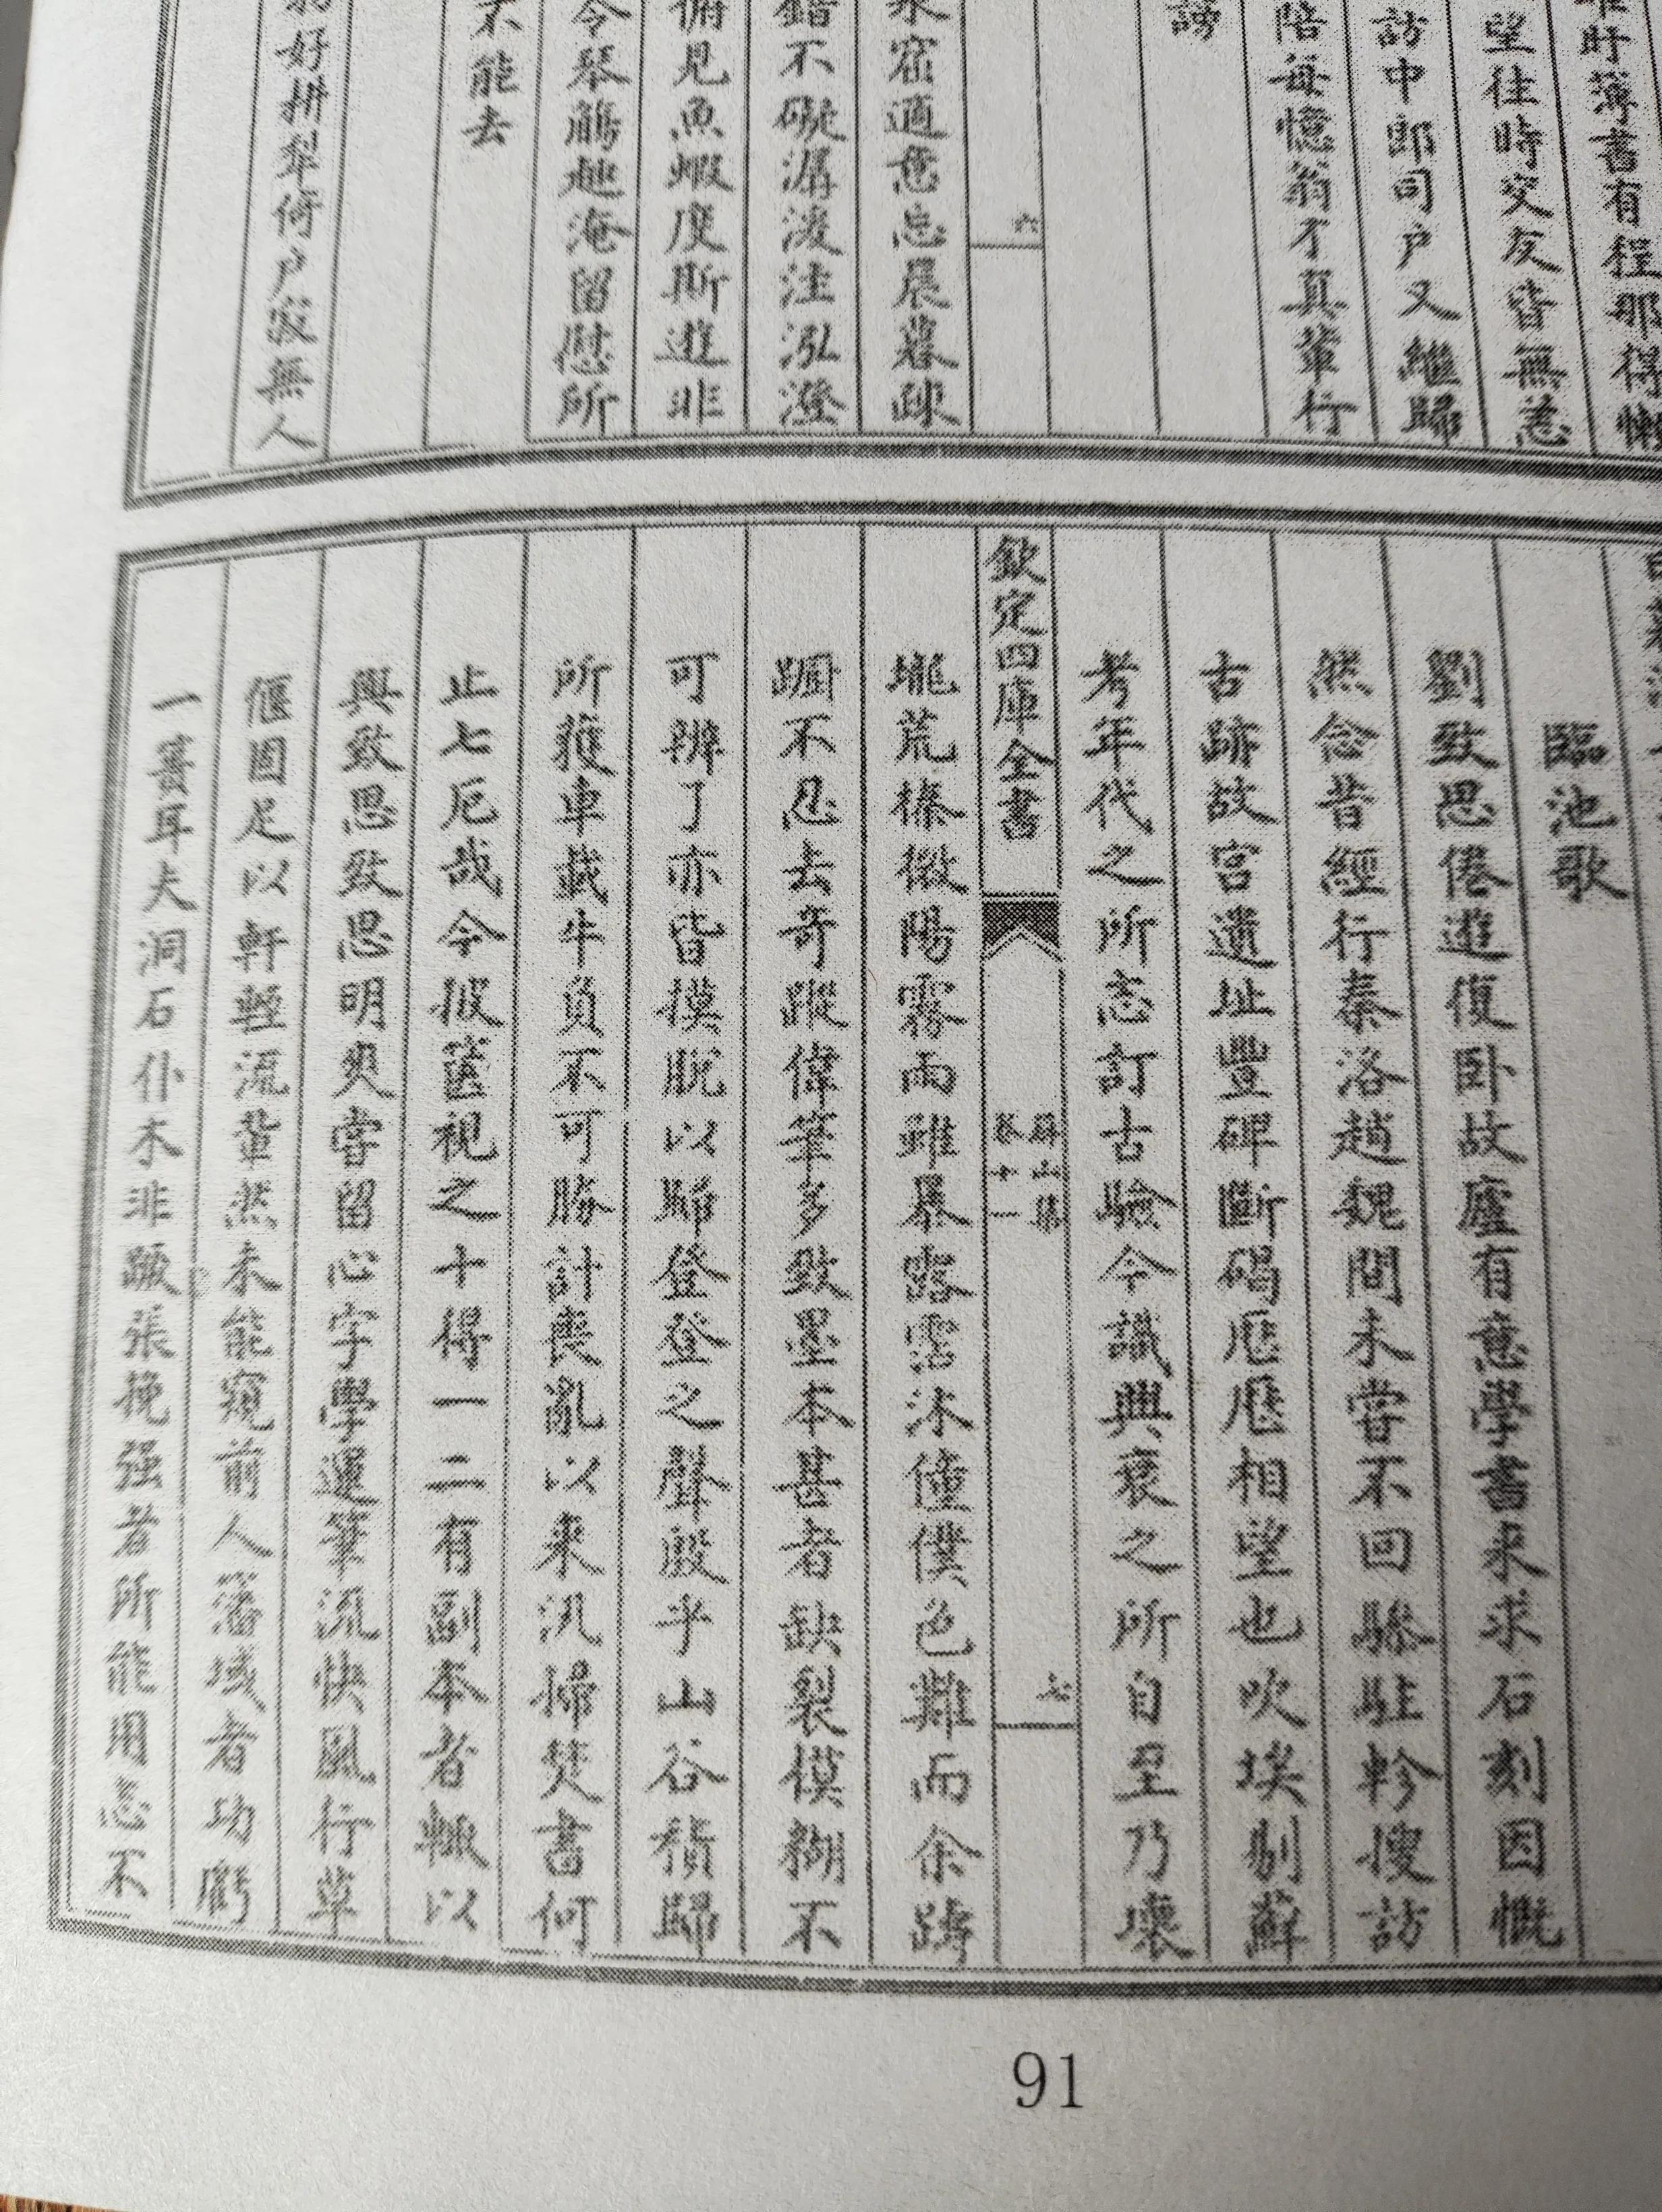 盱薄書有程那得懶
望往時交友皆無恙
訪中郎司户又繼歸
陪每憶翁不真輩行
謗
六
窓適意忘晨暮疎
錯不礙潺湲洼泓澄
俯見魚蝦度斯遊非
令琴觴趣淹留慰所
不能去
好耕犁倚户家無人
臨池歌
劉致思倦遊復卧故廬有意學書來求石刻因慨
然念昔經行秦洛趙魏間未嘗不回驂駐軫搜訪
古跡故宫遺址豐碑斷碣歴歴相望也吹埃剔蘚
考年代之所志訂古驗今識興衰之所自至乃壞
欽定四庫全書
屏山集
卷十一
七
壠荒榛微陽霧雨雖暴露霑沐僮僕色難而余躊
躕不忍去奇蹤偉筆多致墨本甚者缺裂模糊不
可辨了亦皆摸脱以歸登登之聲殷乎山谷積歸
所獲車載牛負不可勝計喪亂以来汎掃焚書何
止七厄哉今披篋視之十得一二有副本者輙以
與致思致思明爽嘗留心字學運筆流快風行草
偃因足以軒輊流輩然未能窺前人籓域者功虧
一簣耳夫洞石仆木非蹶張挽强者所能用志不
91